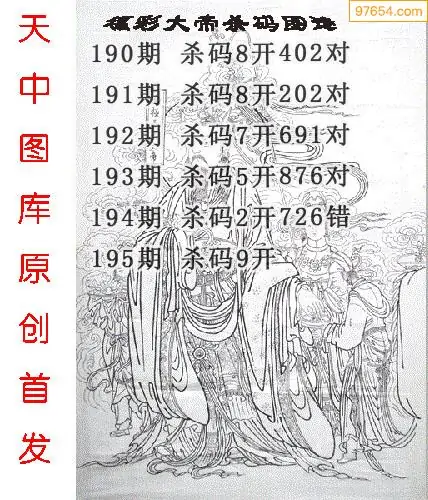 97654.com
福彩大帝杀码图迷
190期 杀码8开402对
191期 杀码8开202对
192期 杀码7开691对
193期 杀码5开876对
194期 杀码2开726错
195期 杀码9开
天中图库原创首发